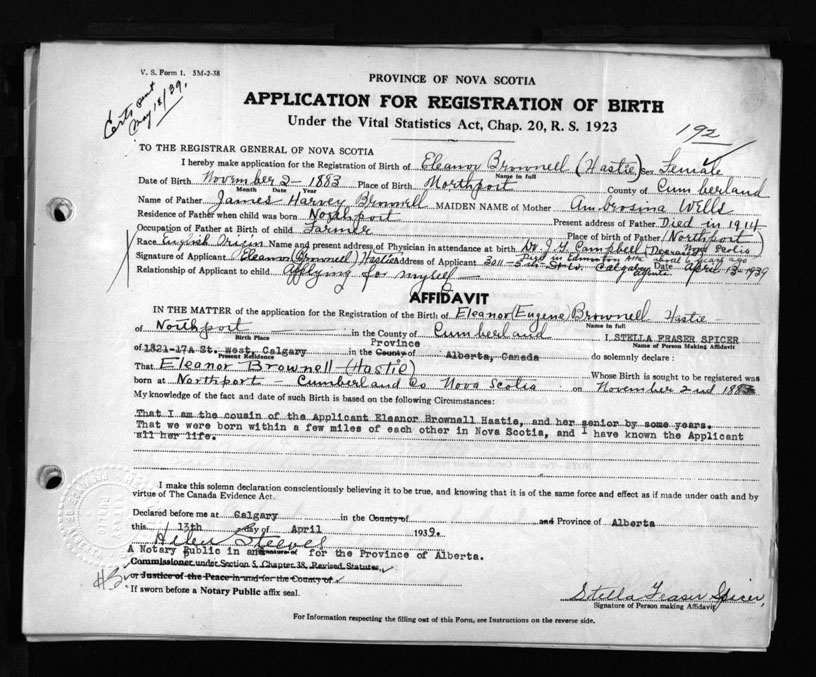 V. S. Form 1. 3M-2-38
Certs sent
May 18/39.
PROVINCE OF NOVA SCOTIA
APPLICATION FOR REGISTRATION OF BIRTH
Under the Vital Statistics Act, Chap. 20, R. S. 1923
192
TO THE REGISTRAR GENERAL OF NOVA SCOTIA
I hereby make application for the Registration of Birth of Eleanor Brownell (Hastie) Sex Female
Name in full
Date of Birth November 2 - 1883 Place of Birth Northport County of Cumberland
Month Date Year
Name of Father James Harvey Brownell MAIDEN NAME of Mother Ambrosina Wells
Residence of Father when child was born Northport Present address of Father Died in 1914
Occupation of Father at Birth of child Farmer Place of birth of Father (Northport)
Nova Scotia
Race English Origin Name and present address of Physician in attendance at birth Dr. J. G. Campbell (Deceased)
Died in Edmonton Alta. about 6 years ago
Signature of Applicant (Eleanor (Brownell) Hastie Address of Applicant 3011-5th St. W. Calgary Date April 13-1939
Relationship of Applicant to child Applying for myself
AFFIDAVIT
IN THE MATTER of the application for the Registration of the Birth of Eleanor (Eugene) Brownell Hastie
Name in full
of Northport in the County of Cumberland I, STELLA FRASER SPICER
Birth Place Province Name of Person Making Affidavit
of 1821-17A St. West, Calgary in the County of Alberta, Canada do solemnly declare :
Present Residence
That Eleanor Brownell - (Hastie) Whose Birth is sought to be registered was
born at Northport - Cumberland Co Nova Scotia on November 2nd 1883
My knowledge of the fact and date of such Birth is based on the following Circumstances:
That I am the cousin of the Applicant Eleanor Brownell Hastie, and her senior by some years.
That we were born within a few miles of each other in Nova Scotia, and I have known the Applicant
all her life.
I make this solemn declaration conscientiously believing it to be true, and knowing that it is of the same force and effect as if made under oath and by
virtue of The Canada Evidence Act.
Declared before me at Calgary in the County of and Province of Alberta
this 13th day of April 1939.
Helen Steeves
A Notary Public in and for the Province of Alberta.
Commissioner under Section 5, Chapter 38, Revised Statutes,
or Justice of the Peace in and for the County of
* If sworn before a Notary Public affix seal.
Stella Fraser Spicer,
Signature of Person making Affidavit
For Information respecting the filling out of this Form, see Instructions on the reverse side.